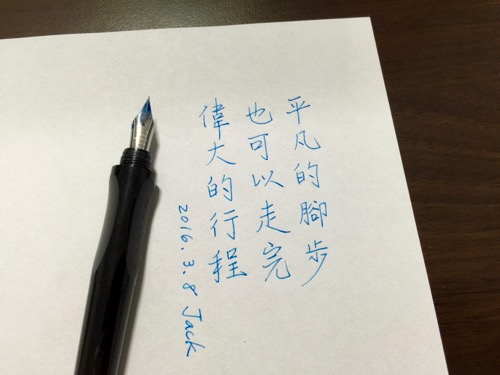 平凡的腳步
也可以走完
偉大的行程
2016.3.8 Jack